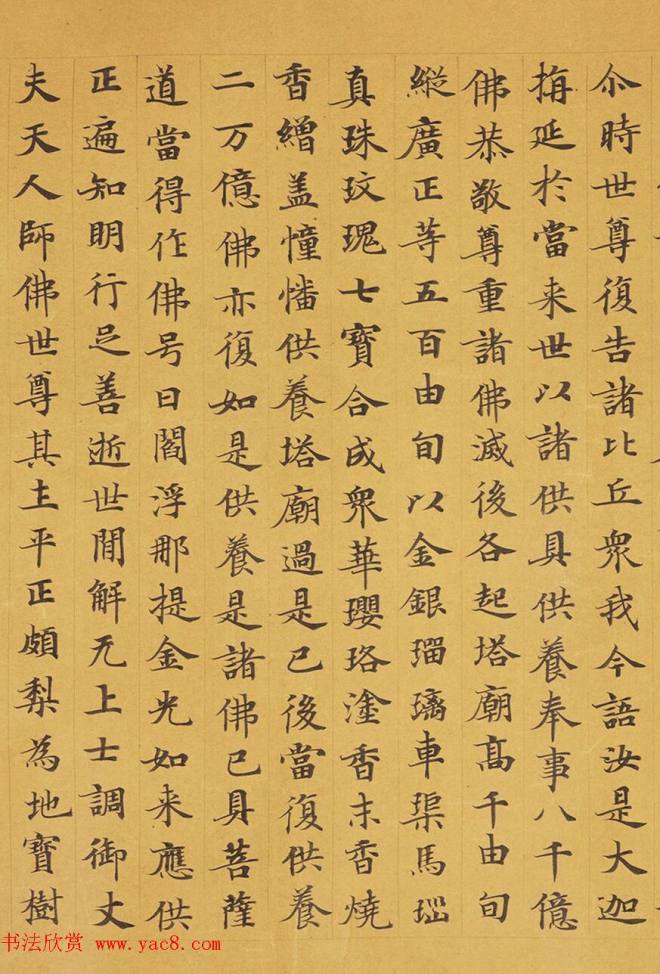 尒時世尊復告諸比丘衆我今語汝是大迦
旃延於當来世以諸供具供養奉事八千億
佛恭敬尊重諸佛滅後各起塔廟髙千由旬
縱廣正等五百由旬以金銀瑠璃車璖馬瑙
真珠玫瑰七寳合成衆華瓔珞塗香末香燒
香繒盖幢幡供養塔廟過是已後當復供養
二万億佛亦復如是供養是諸佛已具菩薩
道當得作佛号曰閻浮那提金光如来應供
正遍知明行足善逝世間解无上士調御丈
夫天人師佛世尊其土平正頗梨為地寳樹
书法欣赏 www.yac8.com